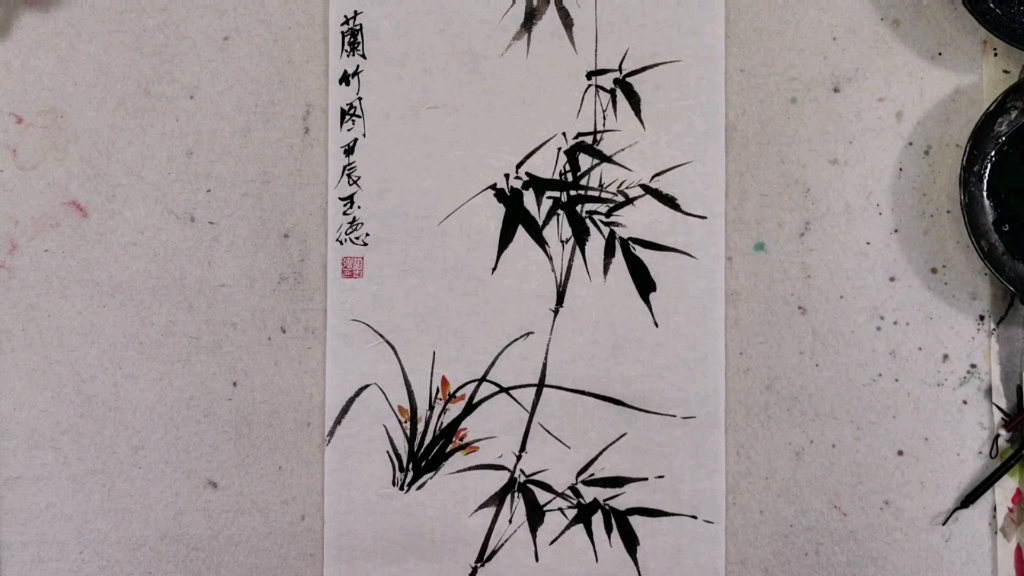 蘭竹图甲辰玉德